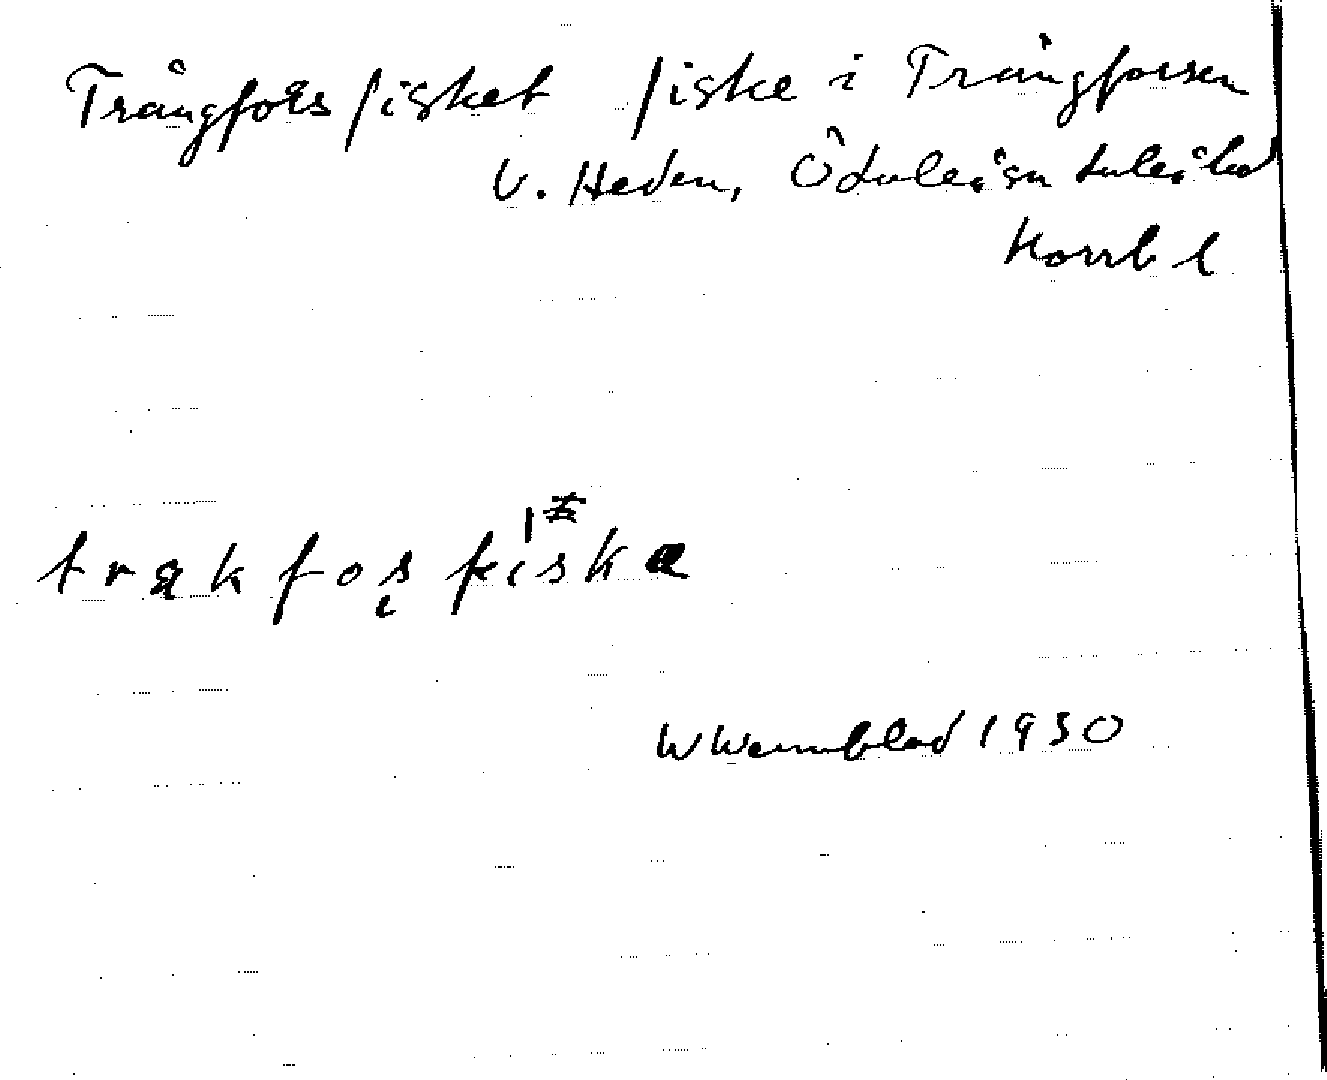 Trångforsfisket fiske i Trångforsen
V. Heden, Öduleåsn Luleåkd
Norrb l
trækfos fiska
W Wennblad 1930